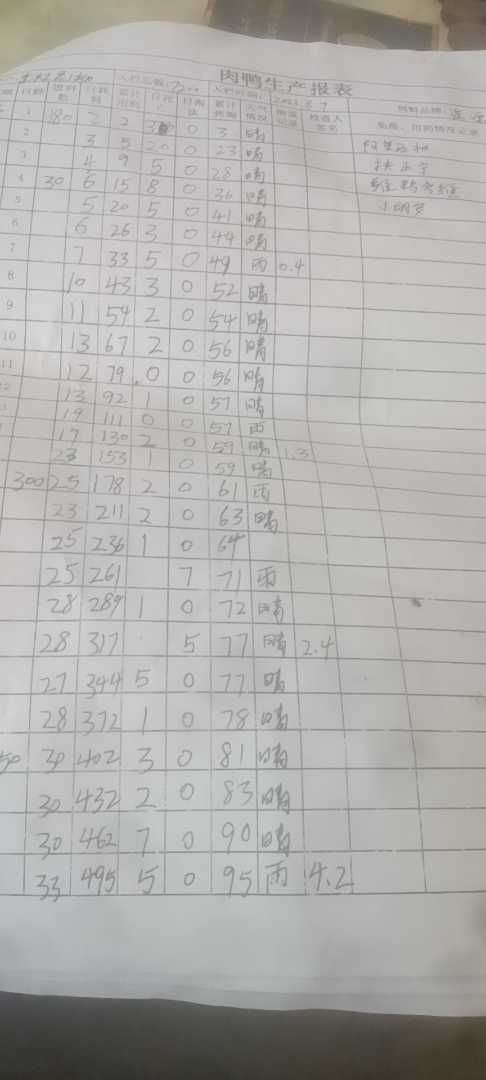 肉鸭生产报表
入栏总数: 7200 入栏时间: 2023.8.7 饲料品牌:
日龄 进料数 日耗料 累计用料 日死亡 日淘汰 累计死淘 天气情况 检查人签名 免疫、用药情况记录
1 180 2 2 3 0 3 晴
2 3 5 20 0 23 晴
3 4 9 5 0 28 晴
4 30 6 15 8 0 36 晴
5 5 20 5 0 41 晴
6 6 26 3 0 44 晴
7 7 33 5 0 49 雨 0.4
8 10 43 3 0 52 晴
9 11 54 2 0 54 晴
10 13 67 2 0 56 晴
11 12 79 0 0 56 晴
12 13 92 1 0 57 晴
19 111 0 0 57 雨
19 130 2 0 59 晴 1.3
23 153 1 0 59 晴
300 25 178 2 0 61 雨
23 211 2 0 63 晴
25 236 1 0 64
25 261 7 71 雨
28 289 1 0 72 晴
28 317 5 77 晴 2.4
27 344 5 0 77 晴
28 372 1 0 78 晴
50 30 402 3 0 81 晴
30 432 2 0 83 晴
30 462 7 0 90 晴
33 495 5 0 95 雨 4.2